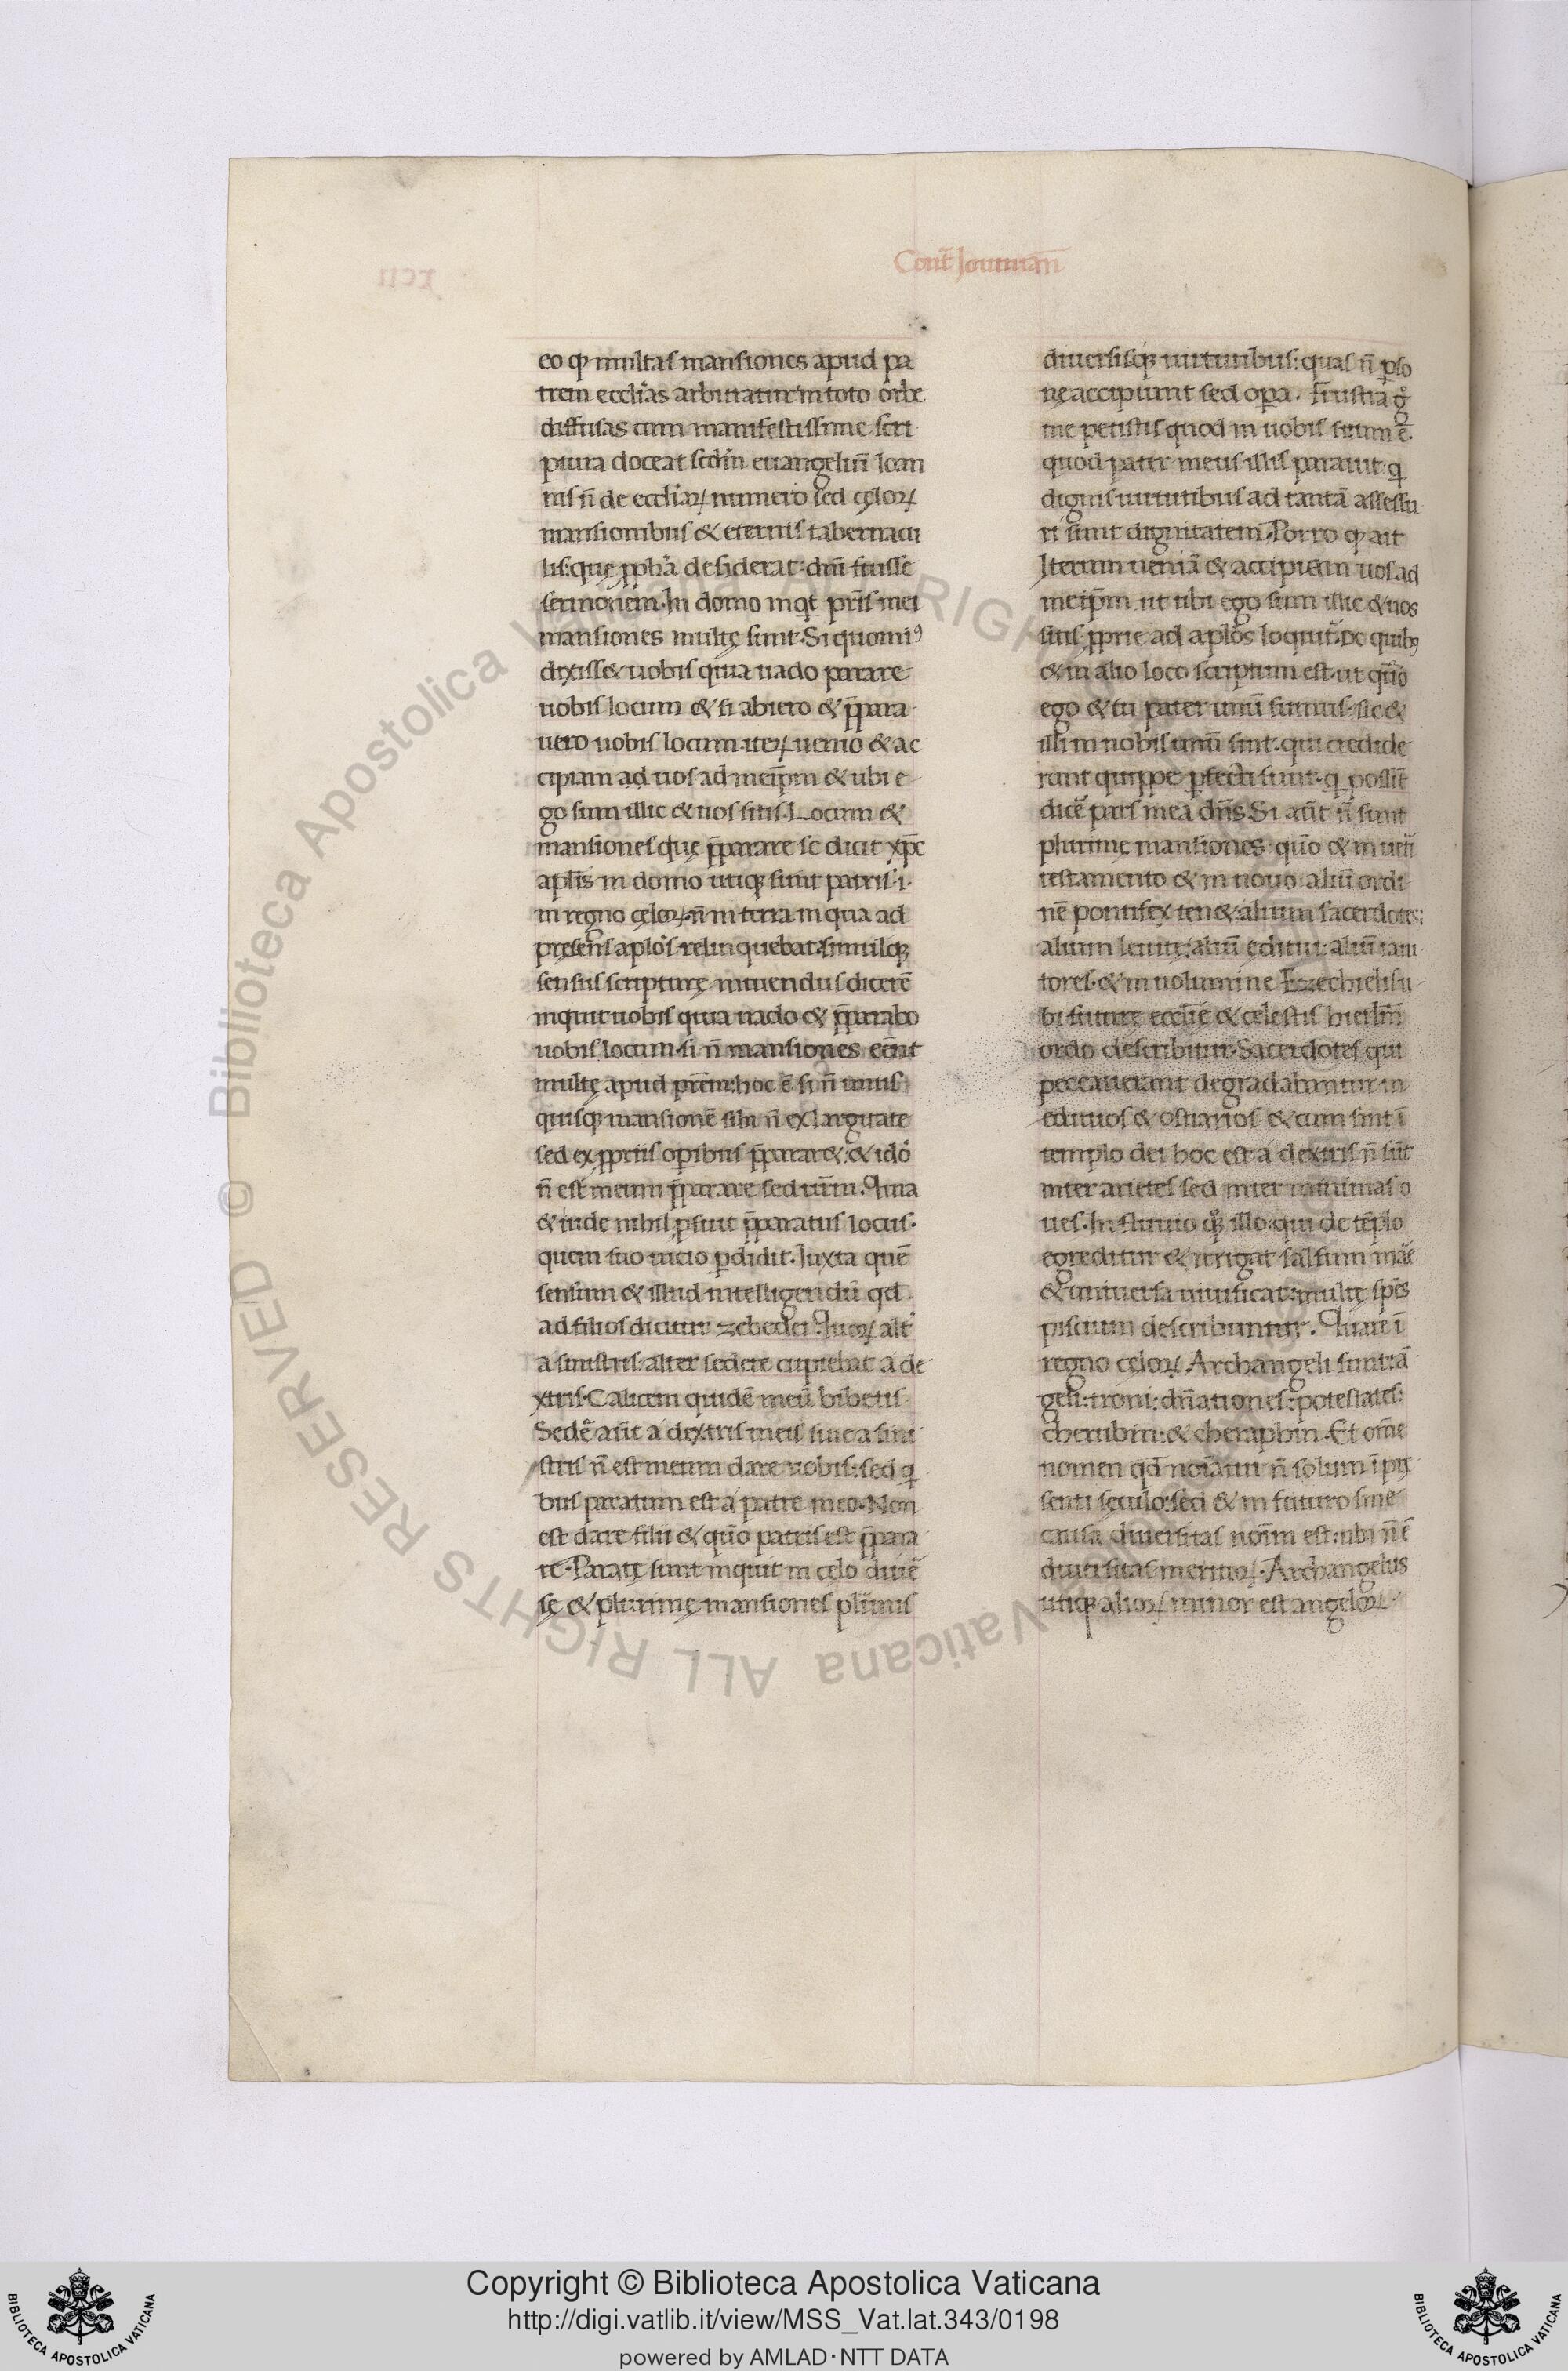 Cont̄ Iouinian̄
eo ꝙ multas mansiones apud pa
trem ecc̄lias arbitratur in toto orbe
diffusas cum manifestissime scri
ptura doceat scd̄m euangeliū Ioan
nis n̄ de ecc̄liaꝝ numero sed cęloꝝ
mansionibus & eternis tabernacu
lis: quę ꝓph̄a desiderat: dn̄m fuisse
sermonem. In domo inqt pr̄is mei
mansiones multę sunt. Si quominꝰ
dixiss& uobis quia uado parare
uobis locum & si abiero & p̄para
uero uobis locum. iteꝝ uenio & ac
cipiam ad uos ad meip̄m & ubi e
go sum illic & uos sitis. Locum &
mansiones quę p̄parare se dicit xp̄c
apl̄is in domo utiqꝫ sunt patris .i.
in regno cęloꝝ. n̄ in terra in qua ad
pręsens apl̄os relinquebat. simulqꝫ
sensus scripturę intuendus dicerē
inquit uobis quia uado & p̄parabo
uobis locum. si n̄ mansiones eēnt
multę apud pr̄em: hoc ē si n̄ unus
quisqꝫ mansionē sibi n̄ ex largitate
sed ex ꝓpriis oꝑibus p̄parar&. & idō
n̄ est meum p̄parare sed ur̄m. Quia
& iude nihil ꝓfuit p̄paratus locus.
quem suo uicio ꝑdidit. Iuxta quē
sensum & illud intelligendū qd
ad filios dicitur zebedei. Quoꝝ alt̄
a sinistris: alter sedere cupiebat a de
xtris. Calicem quidē meū bibetis
Sedē aūt a dextris meis siue a sini
stris n̄ est meum dare uobis: sed q̄
bus paratum est a patre meo. Non
est dare filii & quō patris est p̄para
re. Paratę sunt inquit in celo diuē
sę & plurimę mansiones plīmis
diuersisqꝫ uirtutibus: quas n̄ ꝑso
nę accipiunt sed oꝑa. Frustra gͦ
me petistis quod in uobis situm ē.
quod pater meus illis parauit. q̄
dignis uirtutibus ad tantā assessu
ri sunt dignitatem. Porro ꝙ ait
Iterum ueniā & accipiam uos ad
meip̄m. ut ubi ego sum illic & uos
sitis. ꝓprie ad apl̄os loquit̄. De quibꝫ
& in alio loco scriptum est. ut quō
ego & tu pater unū sumus. sic &
illi in nobis unū sint. qui credide
rant quippe ꝑfecti sunt. q̄ possīt
dicē pars mea dn̄s. Si aūt n̄ sunt
plurimę mansiones. quō & in uetī
testamento & in nouo. aliū ordi
nē pontifex ten&: alium sacerdotes:
alium leuitę: aliū ęditui: aliū iani
tores. & in uolumine Ezechielis u
bi futurę ecc̄lię & celestis hierlm̄
ordo describitur. Sacerdotes qui
peccauerant degradabuntur in
edituos & ostiarios & cum sint ī
templo dei hoc est a dextris n̄ sūt
inter arietes sed inter minimas o
ues. In fluuio qꝫ illo: qui de tēplo
egreditur & irrigat salsum marē
& uniuersa uiuificat: multę spēs
piscium describuntur. Quare ī
regno cęloꝝ Archangeli sunt: ā
geli: troni: dn̄ationes: potestates:
cherubin: & cheraphin. Et om̄e
nomen qd̄ noīatur n̄ solum ī prę
senti sęculo: sed & in futuro sine
causa diuersitas noīm est: ubi n̄ ē
diuersitas meritoꝝ. Archangelus
utiqꝫ alioꝝ minor est angeloꝝ
Copyright © Biblioteca Apostolica Vaticana
http://digi.vatlib.it/view/MSS_Vat.lat.343/0198
powered by AMLAD·NTT DATA